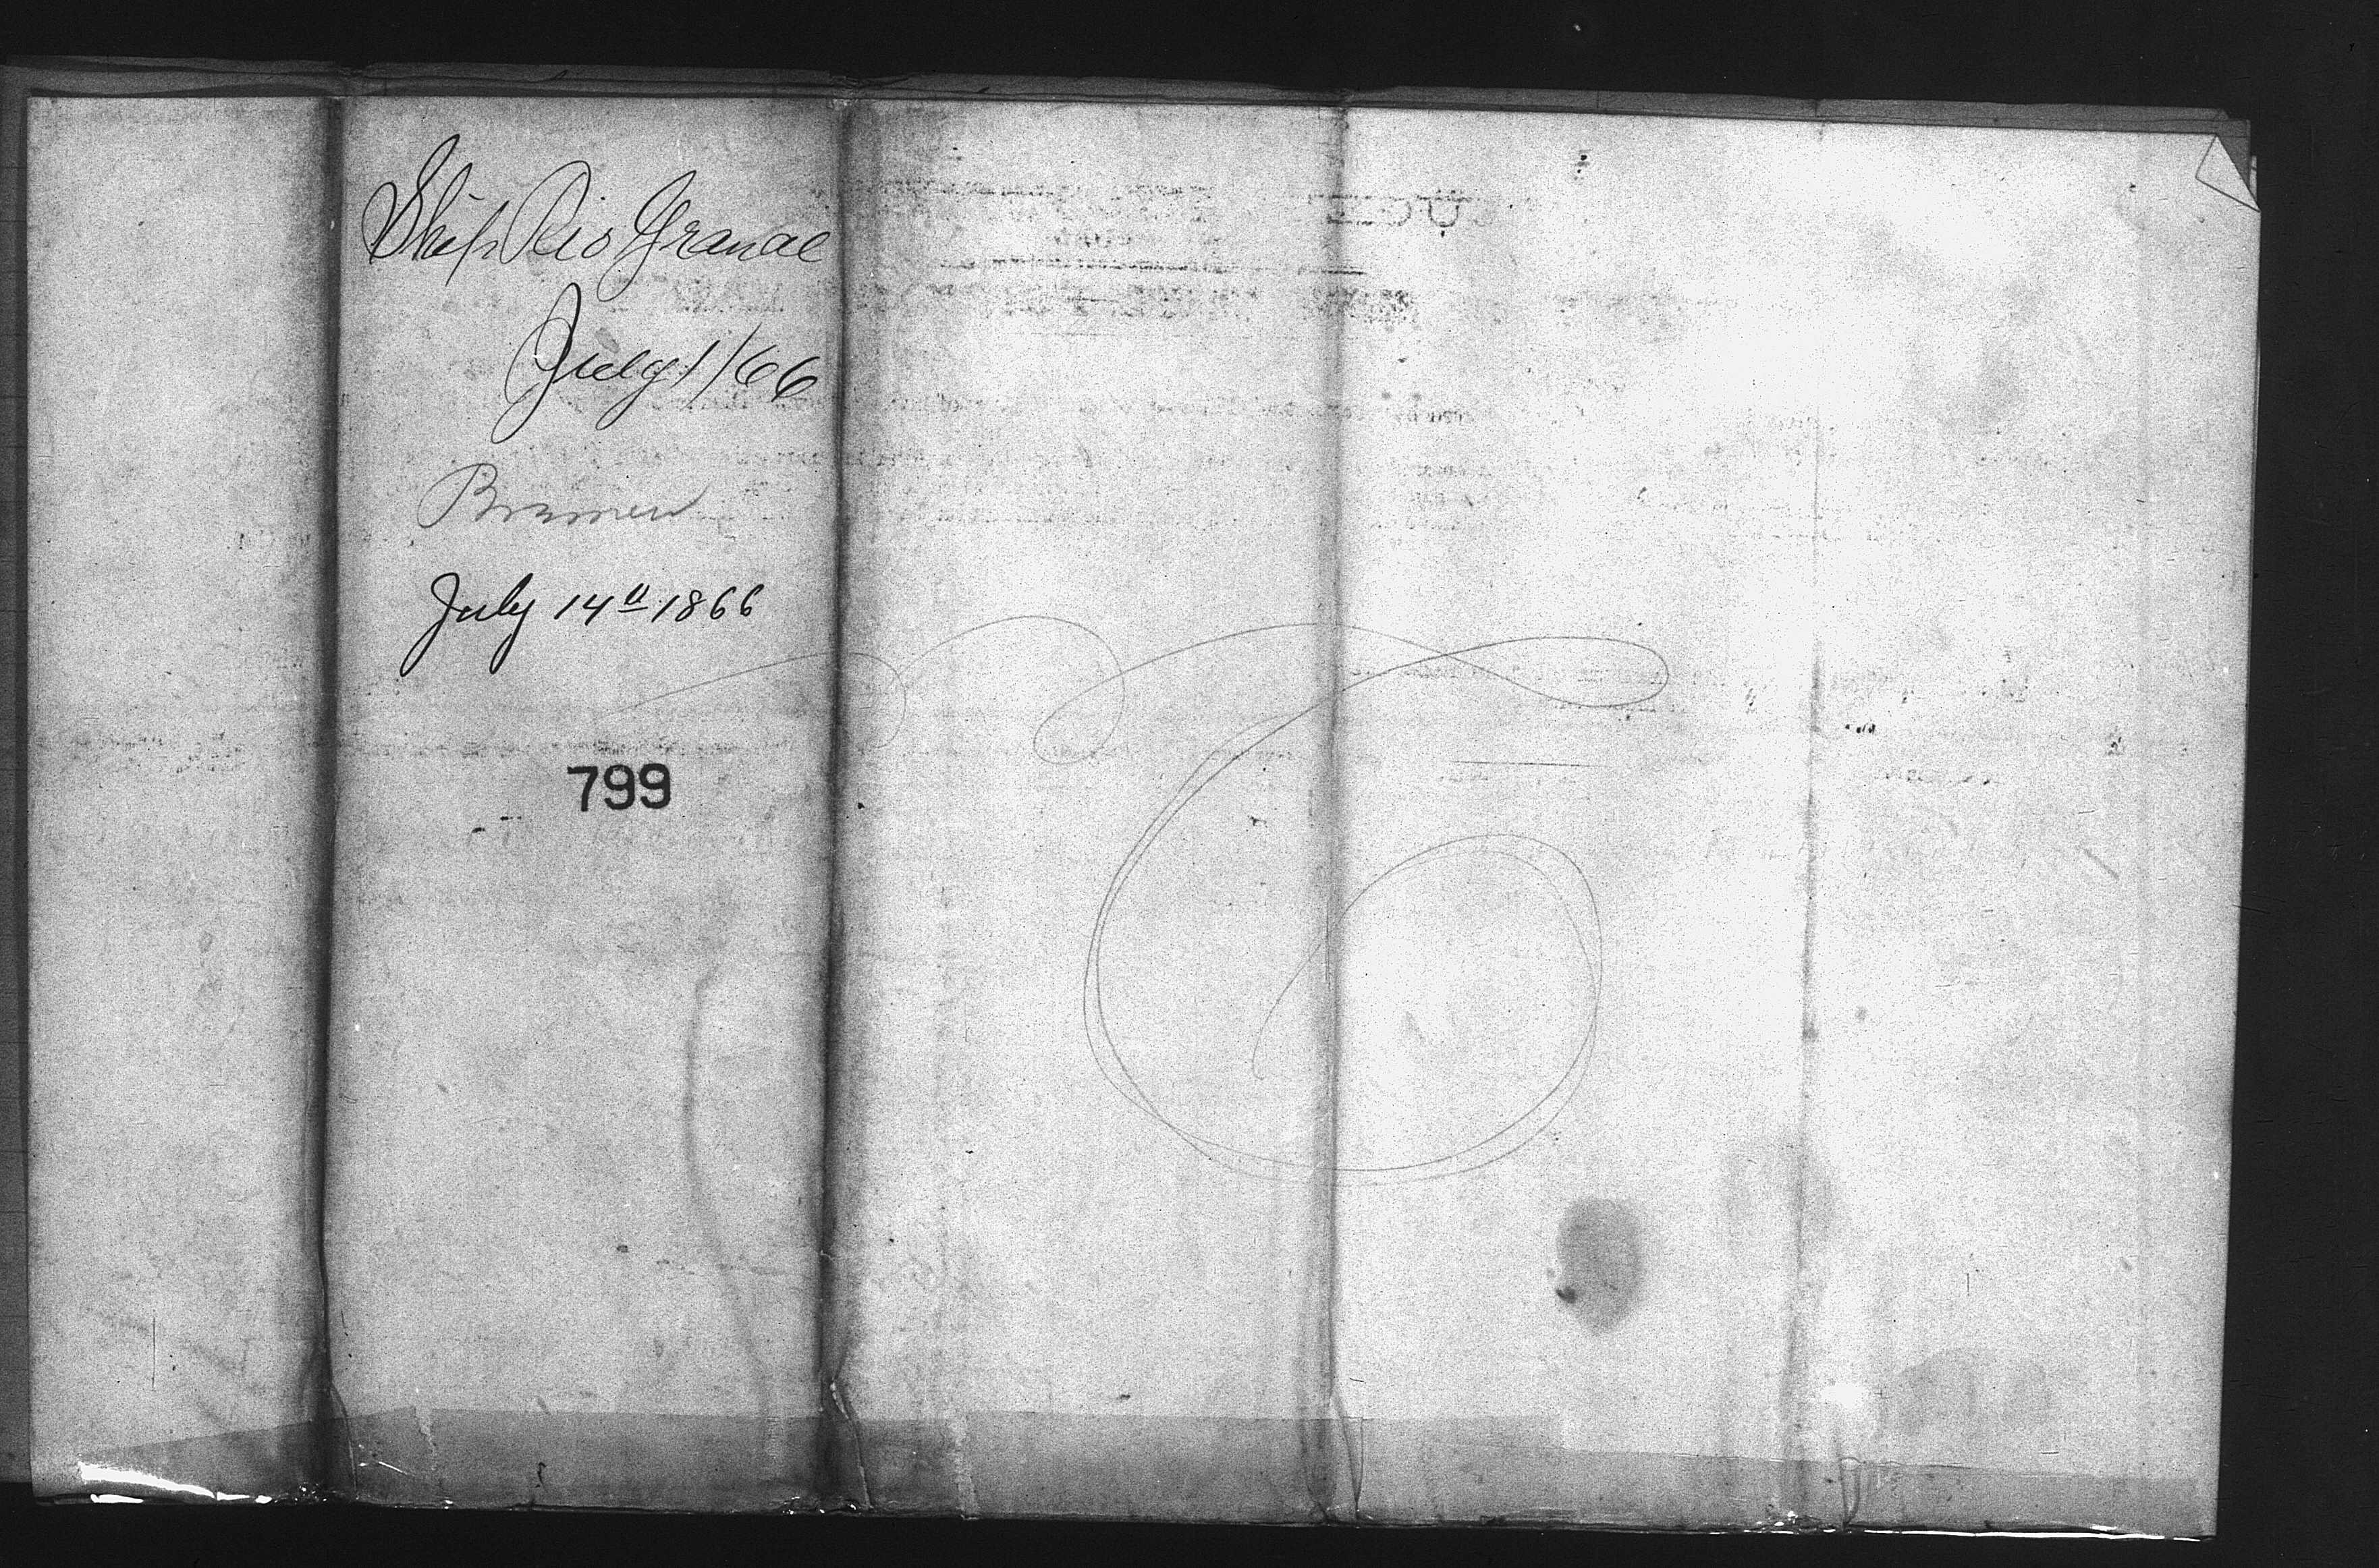 Ship Rio Grande
July 1/66
Bremen
July 14th 1866
799